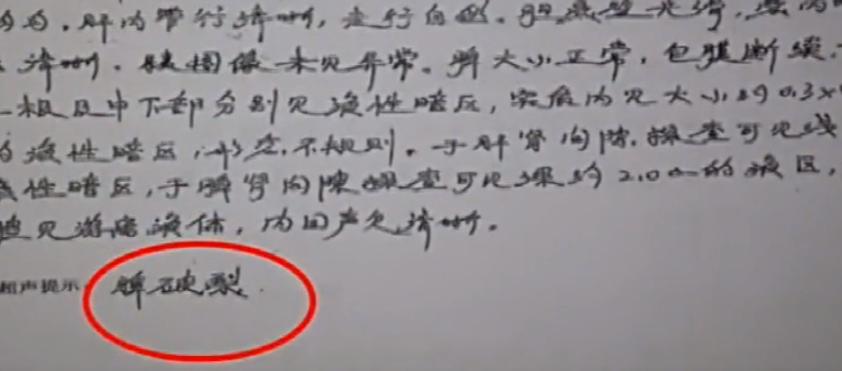 均匀，肝内管行清晰，走行自然。胆囊壁光滑，囊内
清晰。胰图像未见异常。脾大小正常，包膜断续，
极及中下部分别见液性暗区，实质内见大小约0.3×
的液性暗区，形态不规则。于肝肾间隙探查可见线
液性暗区，于脾肾间隙探查可见深约2.0cm的液区，
见游离液体，内回声欠清晰。
超声提示：脾破裂.